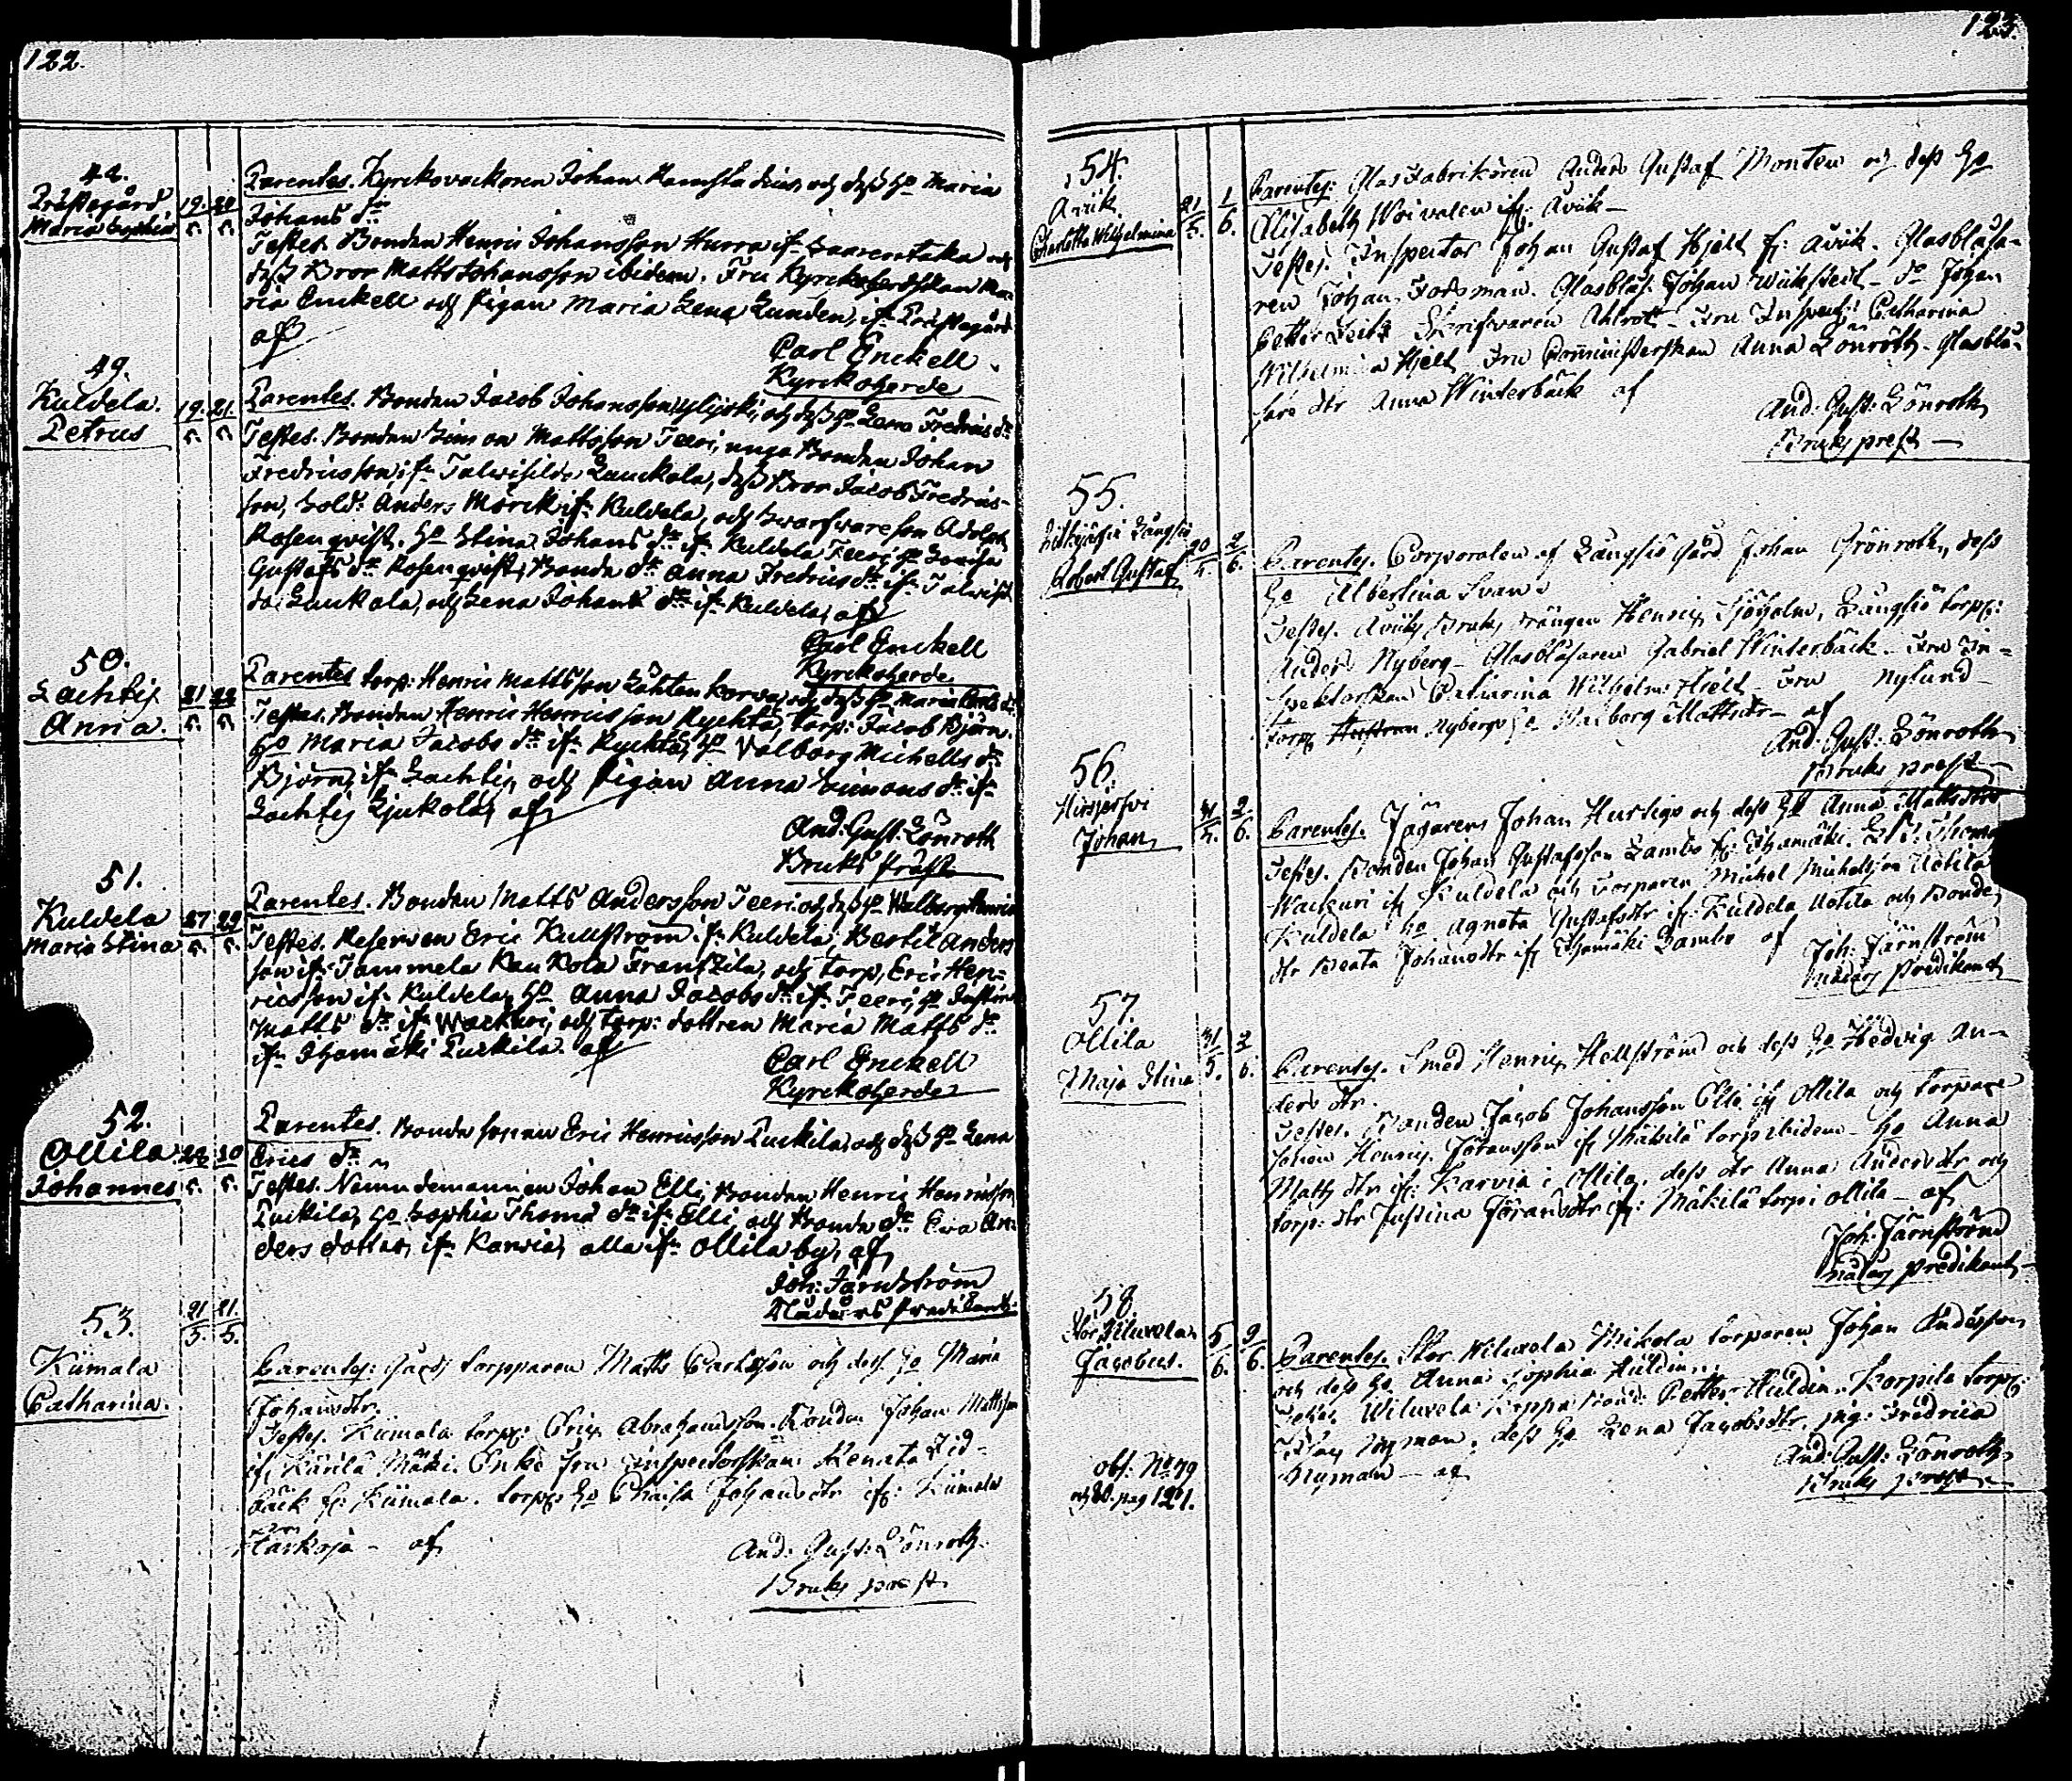 122.
48.
Prästegård
Maria Sophia
19. 5. 5.
Parentes. Kyrkovacktaren Johan och dess Ho Maria
Johans dr.
Testes. Bonden Henric Johansson Hurra ifr Saarentaka och
dess Bror Matts Johansson ibidem. Fru Kyrckoherdskan Ma-
ria Enckell och Pigan Maria Lena Lunden, ifr Prästegård
af
Carl Enckell
Kyrckoherde
49.
Kuldela.
Petrus
19. 21.
5. 5.
Parentes. Bonden Jacob Johansson och dess Ho Lena Fredrics dr
Testes. Bonden Simon Mattsson Teeri, unga Bonden Johan
Fredricsson, ifr Talwisilda Lauckola, dess Bror Jacob Fredrics-
son, Sold: Anders Morck ifr Kuldela, och Swarfware son Adolph
Rosenqvist. Ho Stina Johans dr ifr Kuldela Teeri, Ho
Gustafs dr Rosenqvist, Bonde dr Anna Fredrics dr ifr Talwisil
da Lauckola, och Lena Johans dr ifr Kuldela, af
Carl Enckell
Kyrckoherde
50.
Lachtis
Anna.
21 22
5. 5.
Parentes torp: Henric Mattsson Lähtenkorwa, och dess Ho Maria Carls dr
Testes. Bonden Henric Henricsson Kychtä, torp: Jacob Björn.
Ho Maria Jacobs dr ifr Kychtä, Ho Valborg Michells dr
Björn, ifr Lachtis, och Pigan Anna Simons dr ifr
Lachtis Liukola, af
And: Gust: Lönroth
Bruks präst
51.
Kuldela
Maria Stina
27 29
5. 5.
Parentes. Bonden Matts Andersson Teeri och dess Ho Walborg Henrics
Testes. Reserven Eric Kullström ifr Kuldela, Bertil Anders
son ifr Tammela Kaukola Frantzila, och torp, Eric Hen-
ricsson ifr Kuldela, Ho Anna Jacobs dr ifr Teeri, Ho Justina
Matts dr ifr Wackuri, och torp: dottren Maria Matts dr
ifr Ihamäki Puckila. af
Carl Enckell
Kyrckoherde
52.
Ollila
Johannes
30
5. 5.
Parentes. Bonde sonen Eric Henricsson Puckila, och dess Ho Lena
Erics dr
Testes. Nämndemannen Johan Elli, Bonden Henric Henricsson
Puckila, Ho Sophia Thoma dr ifr Elli, och Bonde dr Eva An-
ders dotter, ifr Karvia, alla ifr Ollila by, af
Joh: Järnström
Nådårs Predikant.
53.
Kiimala
Catharina.
21 21.
5. 5.
Parentes: Gårds torpparen Matts Carlsson och dess Ho Maria
Johansdtr.
Testes. Kiimala torpp: Eric Abrahamsson. Bonden Johan Mattsson
ifr Kärilä Mäki. Enke Fru Inspectorskan Renata Lid-
bäck fr: Kiimala. torpp: Ho Chaisa Johansdtr ifr: Kiimala
Harkoja - af
And: Gust: Lönroth
Bruks prest
123.
54.
Avik
Charlotta Wilhelmina
21 1
5. 6.
Parentes: Glasfabrikören Anders Gustaf Monten och dess Ho
Elisabeth Woivalen ifr: Åvik —
Testes. Inspector Johan Gustaf Hjelt fr: Åvik. Glasblåsa-
ren Johan Forsman. Glasblås: Johan Wickstedt - do Johan
Petter Skrifvaren Ahlroth - Fru Inspect: Catharina
Wilhelmina Hjelt Fru Comministerskan Anna Lönroth - Glasblå-
sare dtr Anna Winterbäck af
And: Gust: Lönroth
Bruks prest —
55.
Långsiö
Robert Gustaf
20 2
5. 6.
Parentes. Corporalen af Långsiö gård Johan Grönroth, dess
Ho Albertina Svan
Testes. Åviks Bruks drängen Henric Sjöholm, Långsiö torpp:
Anders Nyberg - Glasblåsaren Gabriel Winterbäck - Fru In-
spektorskan Catharina Wilhelm: Hjelt - Fru Nylund —
torpp Nybergs Ho Walborg Mattsdtr - af
And: Gust: Lönroth
Bruks prest —
56.
Hirsjerfvi
Johan
31 2
5. 6.
Parentes. Jägaren Johan Hurtigs och dess Ho Anna Mattsdtr
Testes. Bonden Johan Gustafsson Lambo fr: Ihamäki.
Wackuri ifr Kuldela och Torparen Michel Michelsson Uotila
Kuldela Ho Agneta Gustafsdtr ifr: Kuldela Uotila och Bonde
dtr Beata Johansdtr ifr Ihamäki Lambo af
Joh: Järnström
Nådårs Predikant
57.
Ollila
Maja Stina
31 3
5. 6.
Parentes. Smed Henric Hellström och dess Ho Hedvig An-
ders dtr.
Testes. Bonden Jacob Johansson Elli ifr Ollila och torpare
sonen Henric Göransson ifr Mäkilä torp ibidem - Ho Anna
Matts dtr ifr: Karvia i Ollila, dess dtr Anna Andersdtr och
torp: dtr Justina Göransdtr ifr: Mäkilä torp i Ollila - af
Joh: Järnström
Nådårs Predikant
58.
Stor Wiluvela
Jacobus.
5 9
6. 6.
Parentes. Stor Wiluvela Mikola torparen Johan Andersson
och dess Ho Anna Sophia Auldin.
Testes Wiluvela Bond: Petter Auldin. Korpila torpp:
Nyman, dess Ho Lena Jacobsdtr. pig: Fredrica
Nyman - af
And: Gust: Lönroth
Bruks prest
obs: No 79
och 80. pag 121.